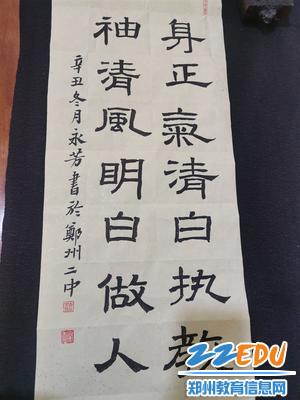 身正氣清白执教
袖清風明白做人
辛丑冬月永芳書於鄭州二中
ZZEDU
郑州教育信息网